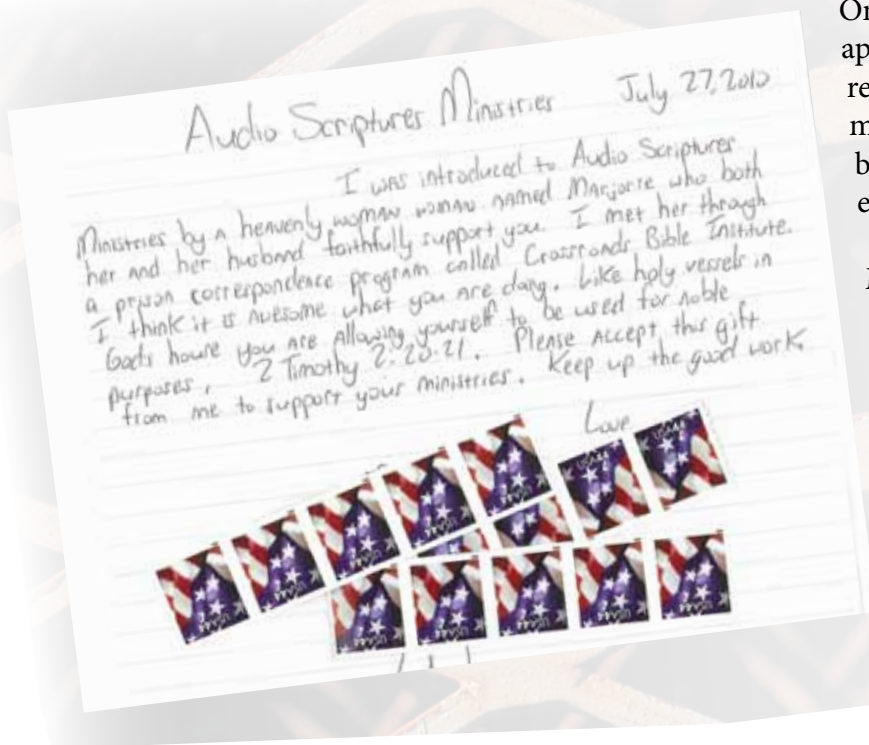 Audio Scriptures Ministries July 27, 2010
I was introduced to Audio Scriptures
Ministries by a heavenly woman woman named Marjorie who both
her and her husband faithfully support you. I met her through
a prison correspondence program called Crossroads Bible Institute.
I think it is awesome what you are doing. Like holy vessels in
Gods house you are allowing yourself to be used for noble
purposes. 2 Timothy 2:20-21. Please accept this gift
from me to support your ministries. Keep up the good work.
Love
USA 44
USA 44
USA 44
USA 44
USA 44
USA 44
USA 44
USA 44
USA 44
USA 44
USA 44
USA 44